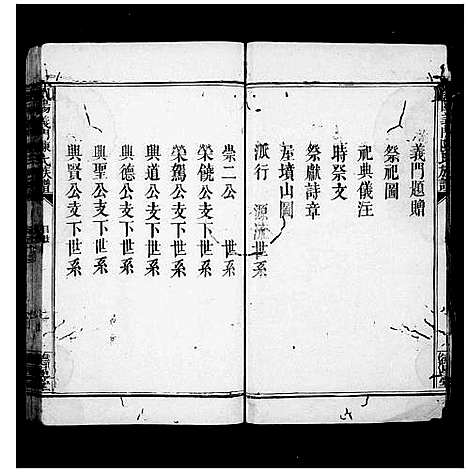 義門題贈
祭祀圖
祀典儀注
時祭文
祭獻詩章
塋墳山圖
派行 源流世系
崇二公 世系
榮僥公支下世系
榮駕公支下世系
興道公支下世系
興德公支下世系
興聖公支下世系
興賢公支下世系
陽義門陳氏族譜